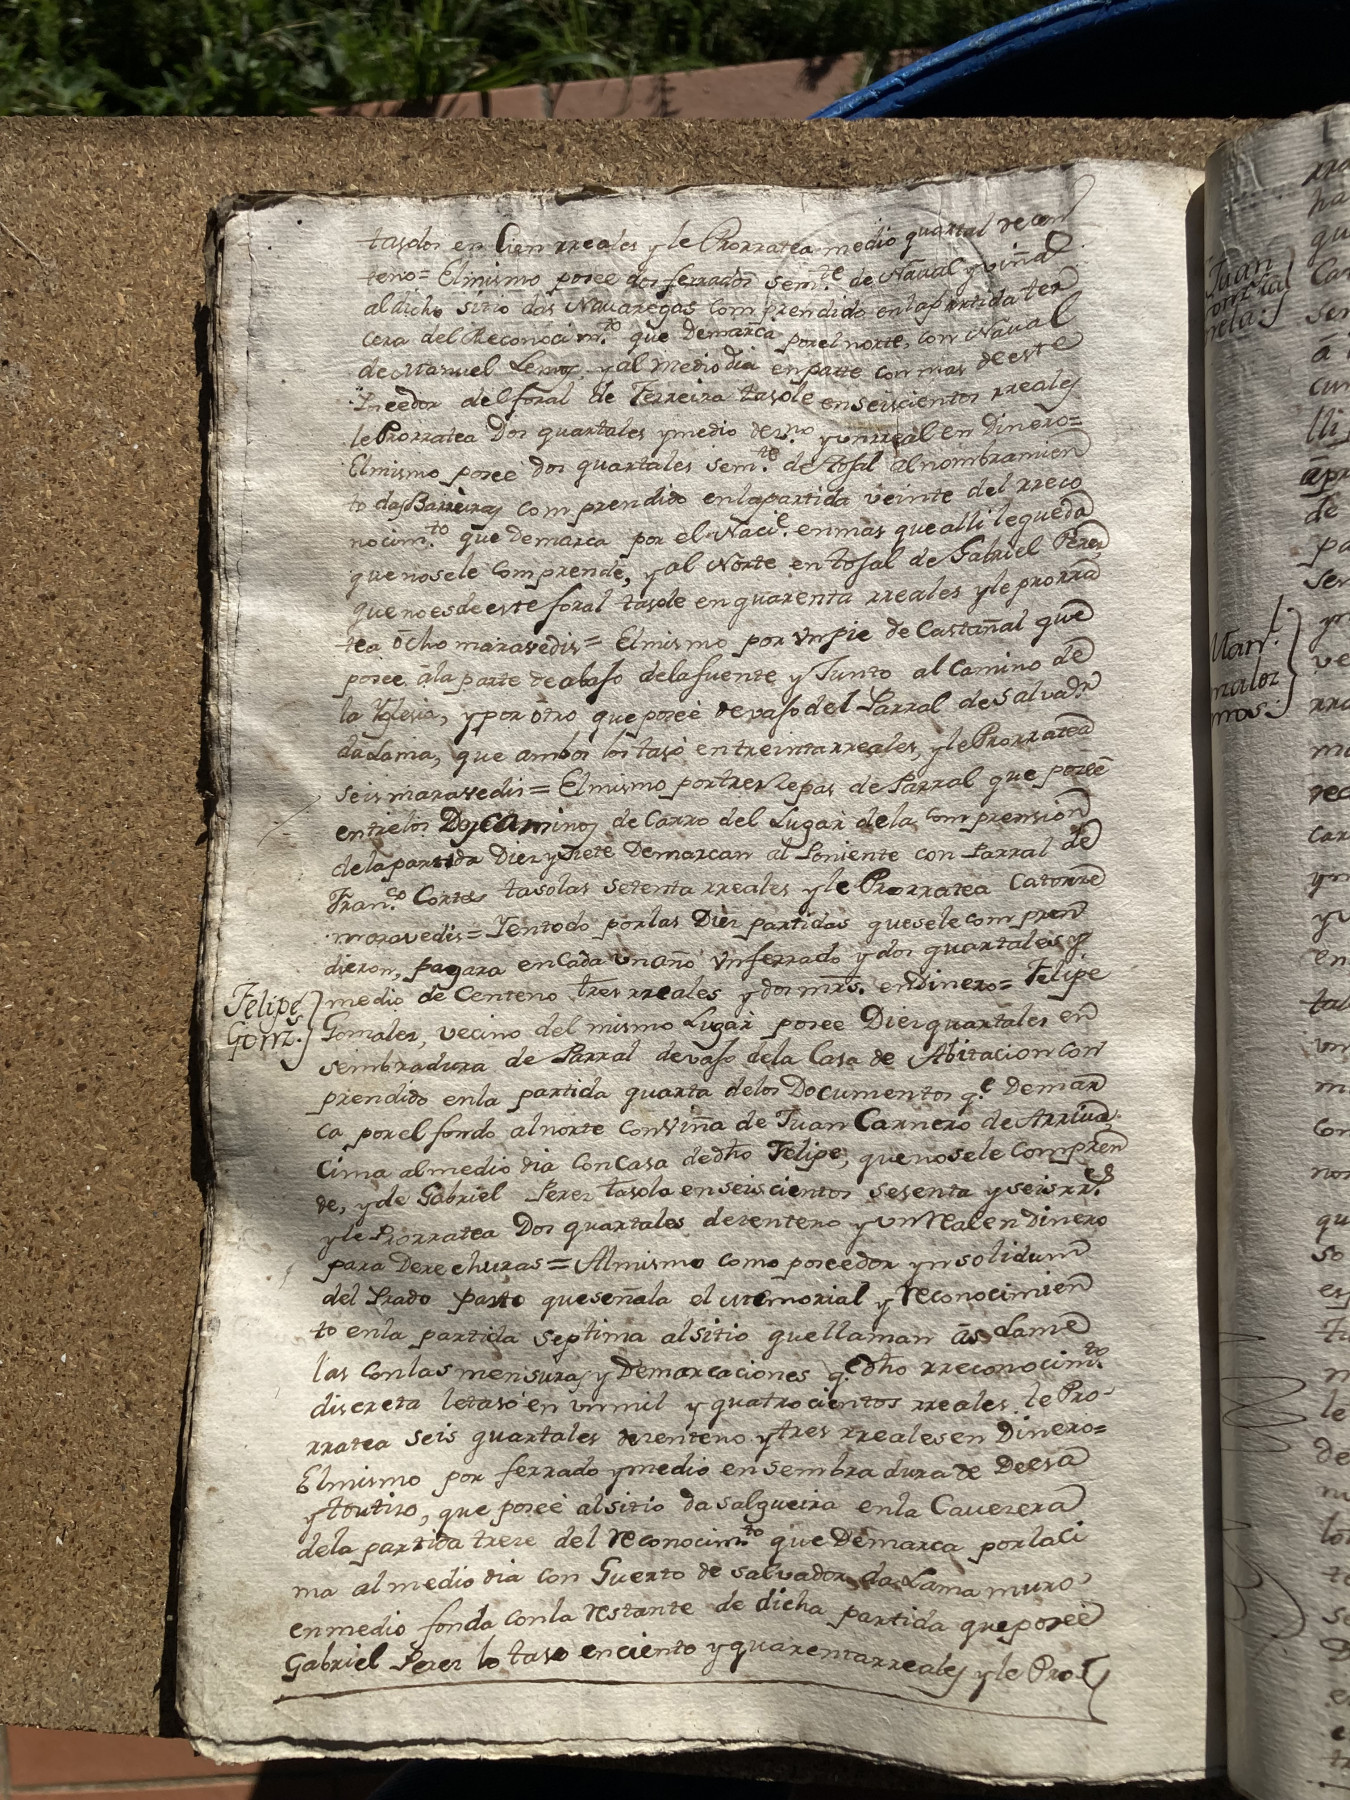 tasdos en Cien rreales y le Prorratea medio quartal de cen
teno= El mismo posee dos ferrados sem.te de Nával y viña
al dicho sitio das Navaregas comprendido en la partida ter
cera del Reconocim.to que Demarca por el norte, con Nával
de Manuel Lemos, y al medio dia en parte con mas de este
Treedor del foral de Ferreira tasole en seiscientos rreales
le Prorratea Dos quartales y medio de zn.no y un rreal en Dinero=
El mismo posee dos quartales sem.te de tosal al nombramien
to das Barreiras comprendido en la partida veinte del rreco
nocim.to que demarca por el Nacie. en mas que alli le queda
que no se le comprende, y al Norte en tosal de Gabriel Perez
que no es de este foral tasole en quarenta rreales y le prorra
tea ocho maravedis= El mismo por un pie de Castañal que
posee á la parte de abaso de la fuente y Junto al Camino de
la Yglesia, y por otro que poseé de vaso del Parral de Salvad.r
da Lama, que ambos los tasó en treinta rreales, y le Prorratea
seis maravedis= El mismo por tres Zepas de Parral que poseé
entre los Dos caminos de Carro del Lugar de la comprension
de la partida Diez y Siete Demarcan al Poniente con Parral de
Fran.co Cortes tasolas setenta rreales y le Prorratea Catorze
maravedis= Y en todo por las Diez partidas que se le compren
dieron, pagara en Cada un año un ferrado y dos quartales y
medio de Centeno tres rreales y dos mrs. en Dinero= Felipe
Felipe
Gonz.s
Gonzales, vecino del mismo Lugar posee Diez quartales en
sembradura de Parral de vaso de la Casa de Abitacion con
prendido en la partida quarta de los Documentos q.e Demar
ca por el fondo al norte con Viña de Juan Carnero de Arriva,
Cima al medio dia con Casa de dho Felipe, que no se le compren
de, y de Gabriel Perez tasola en seis cientos sesenta y seis rr.es
y le Prorratea Dos quartales de zenteno y un Real en Dinero
para Derechuras= Al mismo como poseedor ynsolidum
del Prado pasto que señala el Memorial y reconocimien
to en la partida septima al sitio que llaman ás Lame
las con las mensuras y Demarcaciones q.e dho rreconocim.to
discreta le tasó en un mil y quatro cientos rreales le Pro-
rratea seis quartales de zenteno y tres rreales en Dinero=
El mismo por ferrado y medio en sembradura de Deesa
y toutizo, que poseé al sitio da Salgueira en la Caverera
de la partida treze del reconocim.to que Demarca por la Ci
ma al medio dia con Guerto de Salvador da Lama muro
en medio fonda con la restante de dicha partida que poseé
Gabriel Perez lo taso en ciento y quarenta rreales y le Pro